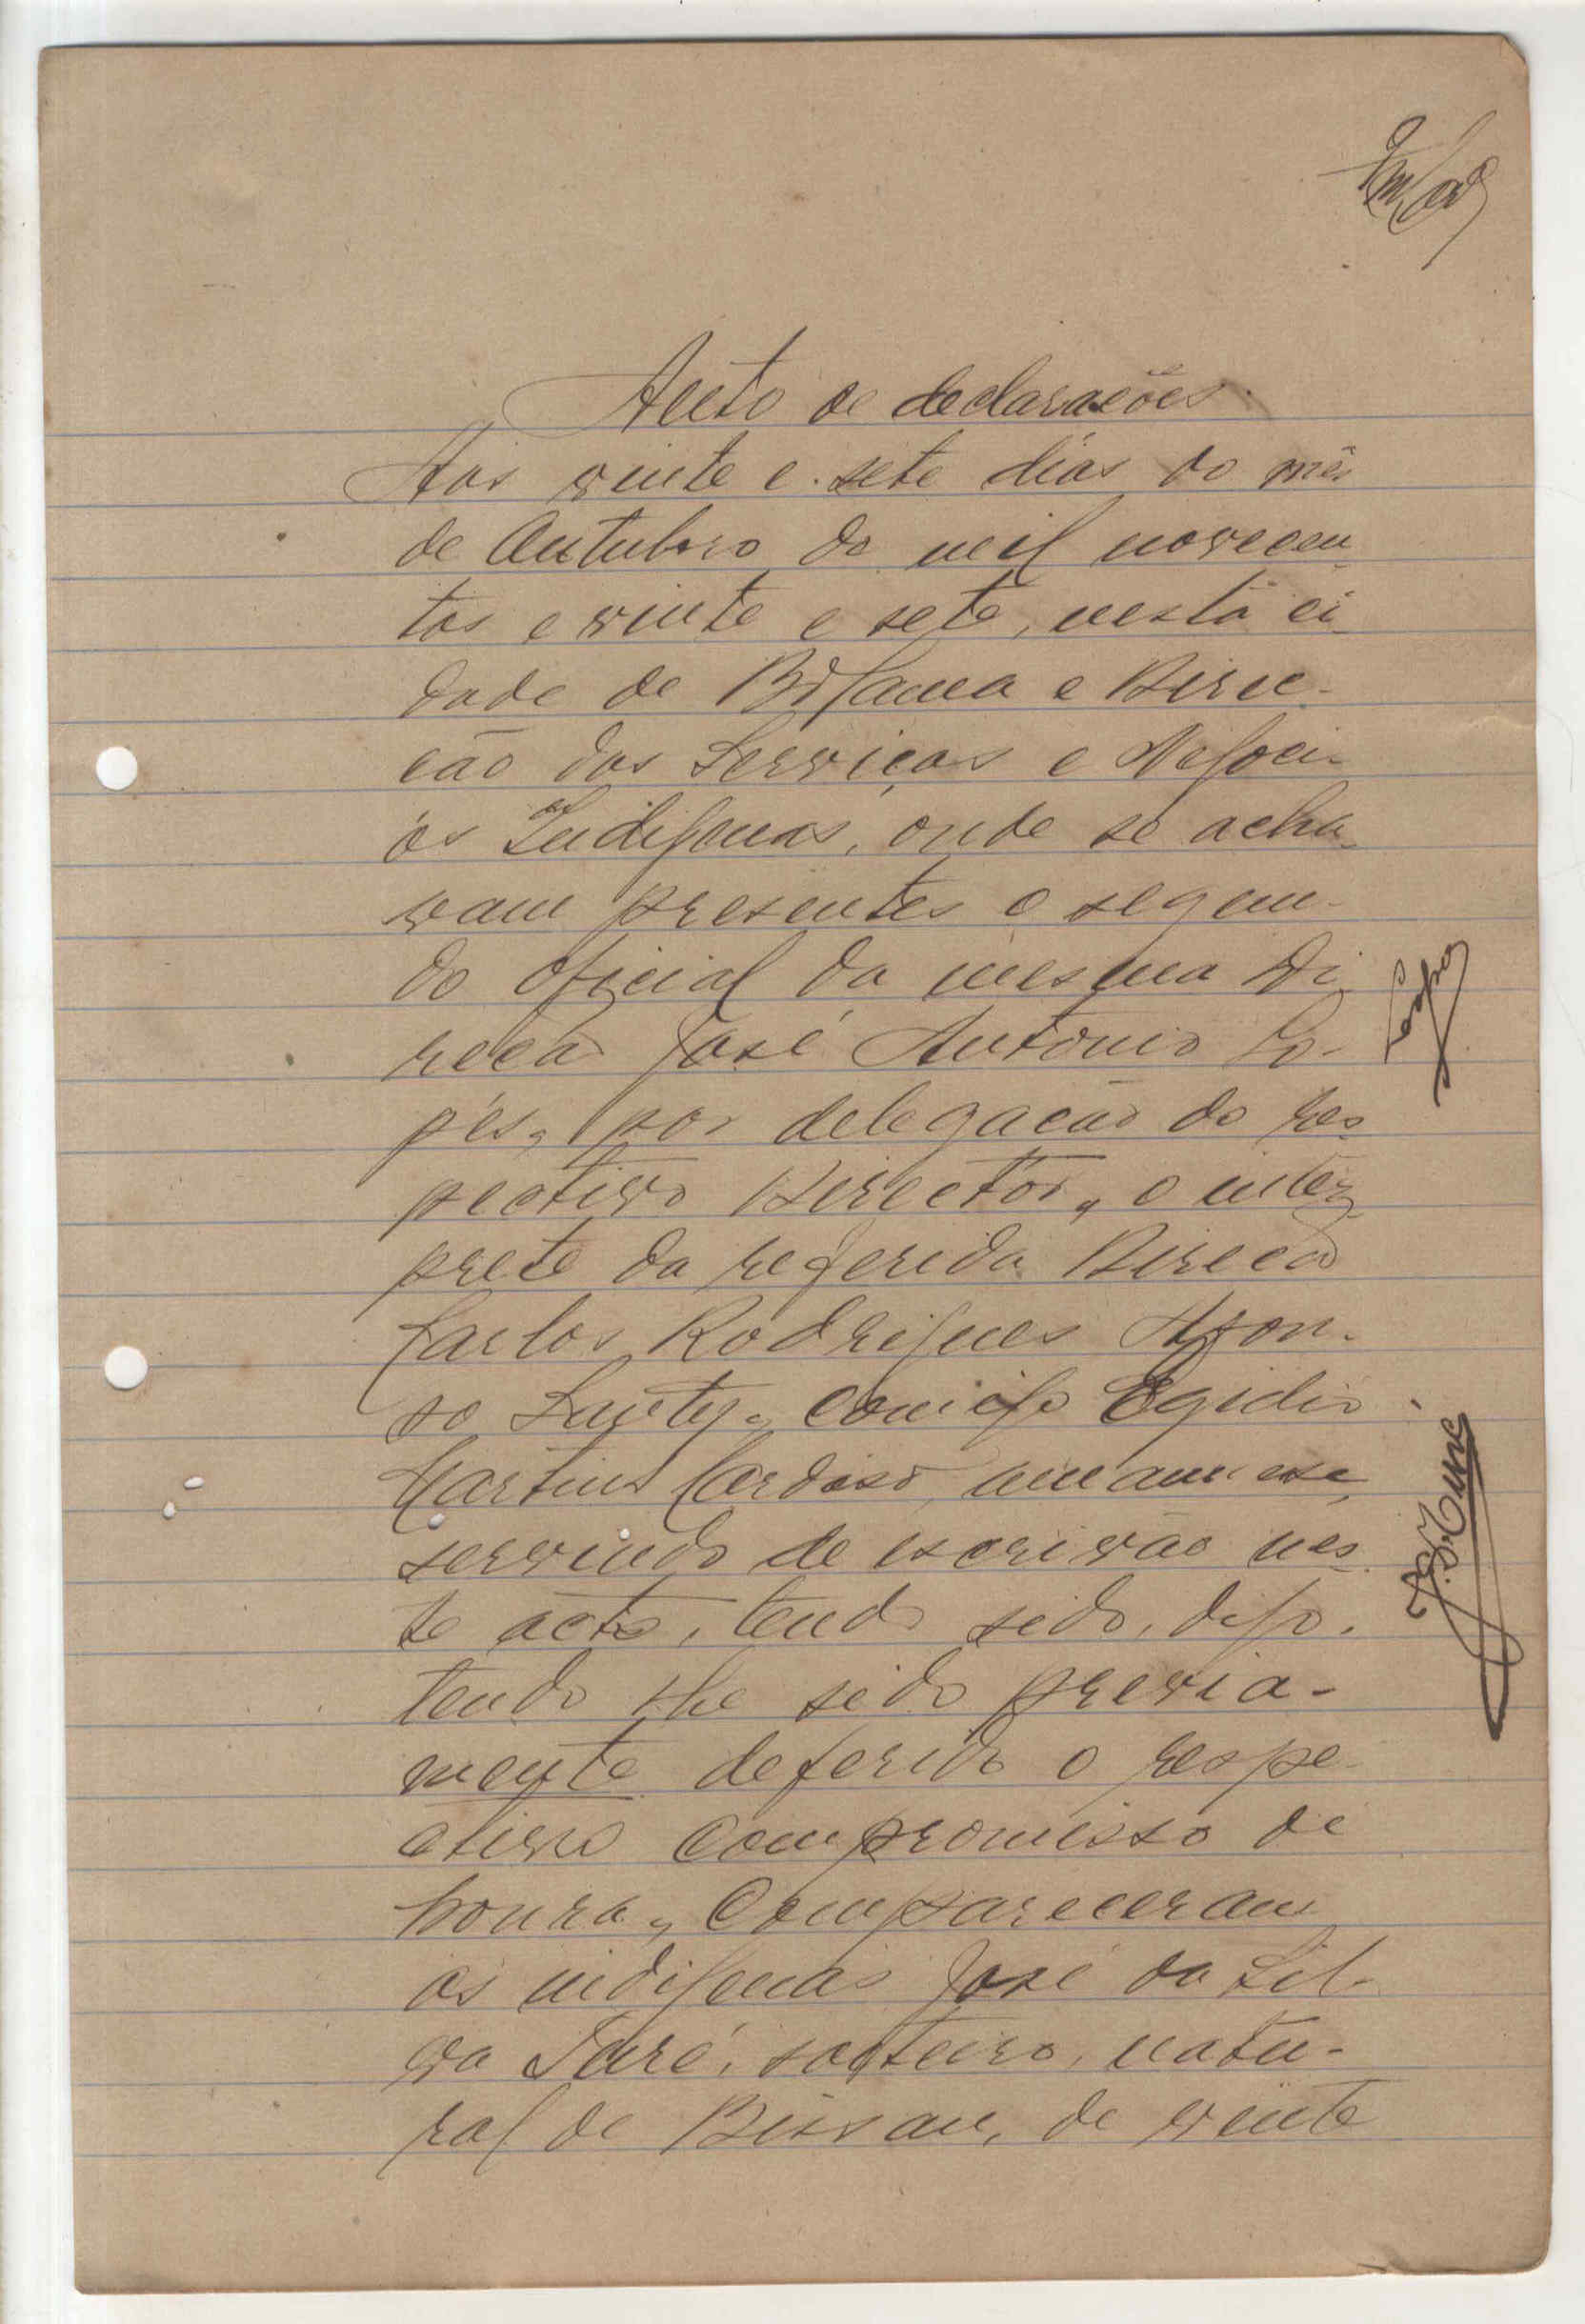 Auto de declarações
Aos vinte e sete dias do mês
de Outubro de mil novecen-
tos e vinte e sete, nesta ci-
dade de Bolama e Direc-
ção dos Serviços e Negoci-
os Indigenas, onde se acha-
vam presentes o segun-
do oficial da mesma Di-
recção José Antonio Lo-
pes, por delegação do res-
pectivo Director, o inter-
prete da referida Direcção
Carlos Rodrigues Afon-
so Santy, comigo Egidio
Martins Cardoso, amanuense,
servindo de escrivão nes-
te acto, tendo sido, digo,
tendo-lhe sido previa-
mente deferido o respe-
ctivo compromisso de
honra, compareceram
os indigenas José da Sil-
va Turé, solteiro, natu-
ral de Bissau, de vinte